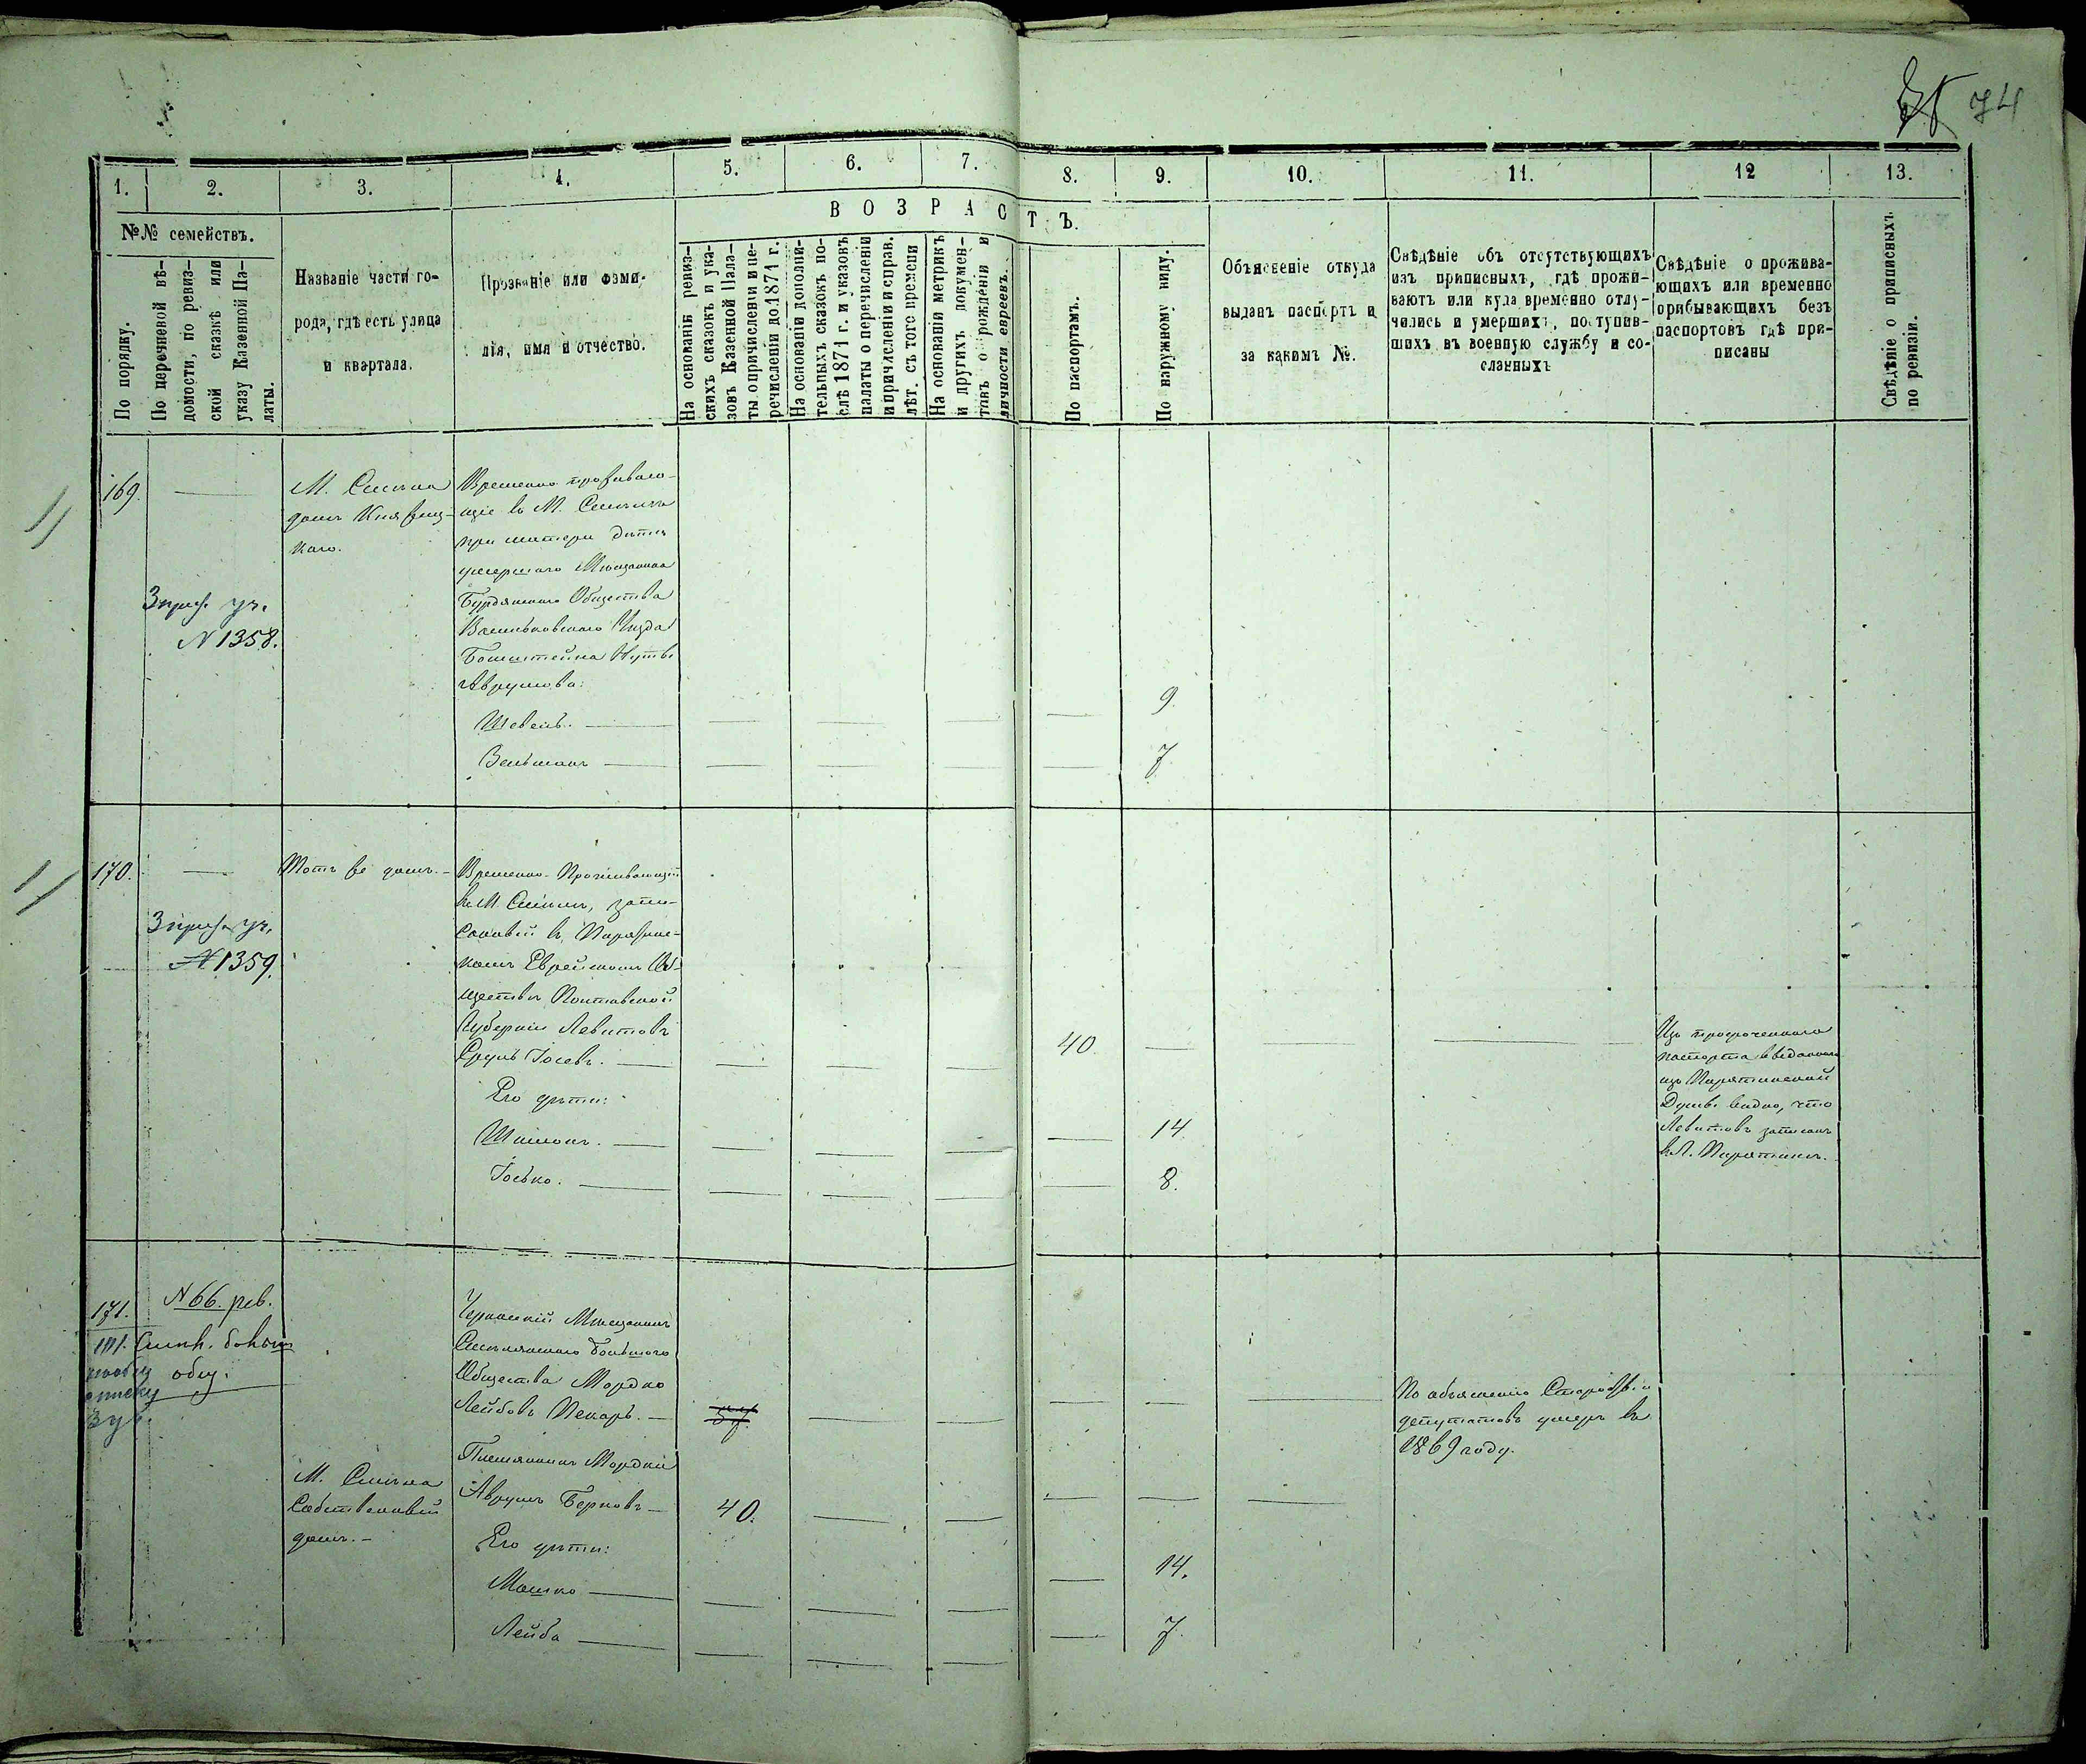 74
1.
2.
3.
4.
5.
6.
7.
8.
9.
10.
11.
12
13.
ВОЗРАСТЪ.
№№ семействъ.
По порядку.
По перечневой вѣ-
домости, по ревиз-
ской сказкѣ или
указу Казенной Па-
латы.
Названіе части го-
рода, гдѣ есть улица
и квартала.
Прозваніе или фами-
лія, имя и отчество.
На основаніи ревиз-
скихъ сказокъ и ука-
зовъ Казенной Пала-
ты о причисленіи и пе-
речисленіи до 1871 г.
На основаніи дополни-
тельныхъ сказокъ по-
слѣ 1871 г. и указовъ
палаты о перечисленіи
и причисленіи и справ.
лѣт. съ того времени
На основаніи метрикъ
и другихъ докумен-
товъ о рожденіи и
личности евреевъ.
По паспортамъ.
По наружному виду.
Объясненіе откуда
выданъ паспортъ и
за какимъ №.
Свѣдѣніе объ отсутствующихъ
изъ приписныхъ, гдѣ прожи-
ваютъ или куда временно отлу-
чились и умершихъ, поступив-
шихъ въ военную службу и со-
сланныхъ
Свѣдѣніе о прожива-
ющихъ или временно
прибывающихъ безъ
паспортовъ гдѣ при-
писаны
Свѣдѣніе о приписныхъ
по ревизіи.
169.
3 приз. уч.
N 1358.
М. Смѣла
домъ Княжиц-
каго.
Временно прожываю-
щіе въ М. Смѣлѣ
при матери дѣти
умершаго Мѣщанина
Общества
Васильковскаго Уѣзда
Аврумова:
Шевель. 9.
Вельман 7
170.
3 приз. уч.
N 1359.
Тотъ же домъ.
Временно-Проживающій
въ М. Смѣлѣ, запи-
санный въ Пирятин-
комъ Еврейскомъ Об-
ществѣ Полтавской
Губерніи Левитовъ
Сруль Іосевъ. 40.
Его дѣти:
Шимонъ. 14.
Іосько. 8.
Изъ просроченнаго
паспорта выданнаго
изъ Пирятинской
Думы видно, что
Левитовъ записанъ
въ Г. Пирятинѣ.
171.
N 66. рев.
Смѣл. больш
общ.
3 уч.
Черкаскій Мѣщанинъ
Смѣлянскаго большого
Общества Мордко
Лейбовъ Пекарь. 57
По объясненію Старосты и
депутатовъ умеръ въ
1869 году.
М. Смѣла
Собственный
домъ.
Племянникъ Мордки
Аврумъ Берковъ 40.
Его дѣти:
Мошко 14.
Лейба 7.